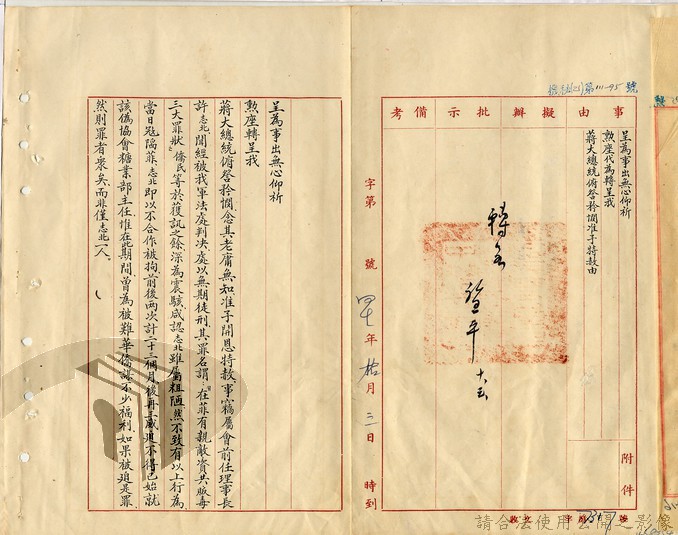 事由擬辦批示備考
呈為事出無心仰祈
勲座代為轉呈我
蔣大總統俯詧矜憫准予特赦由
附件
字第 號 年 月三日 時到
呈為事出無心仰祈
勲座轉呈我
蔣大總統俯詧矜憫念其老庸無知准予開恩特赦事竊屬會前任理事長
許志北聞經被我軍法處判決處以無期徒刑其罪名謂在菲有親敵資共販毒
三大罪狀僑民等於獲訊之餘深為震駭咸認志北雖屬粗陋然不致有以上行為
當日寇陷菲志北即以不合作被拘前後兩次計二十三個月後再三威迫不得已始就
該偽協會糖業部主任惟在此期間曾為被難華僑謀不少福利如果被迫是罪
然則罪者衆矣而菲僅志北一人
請合法使用公開之影像